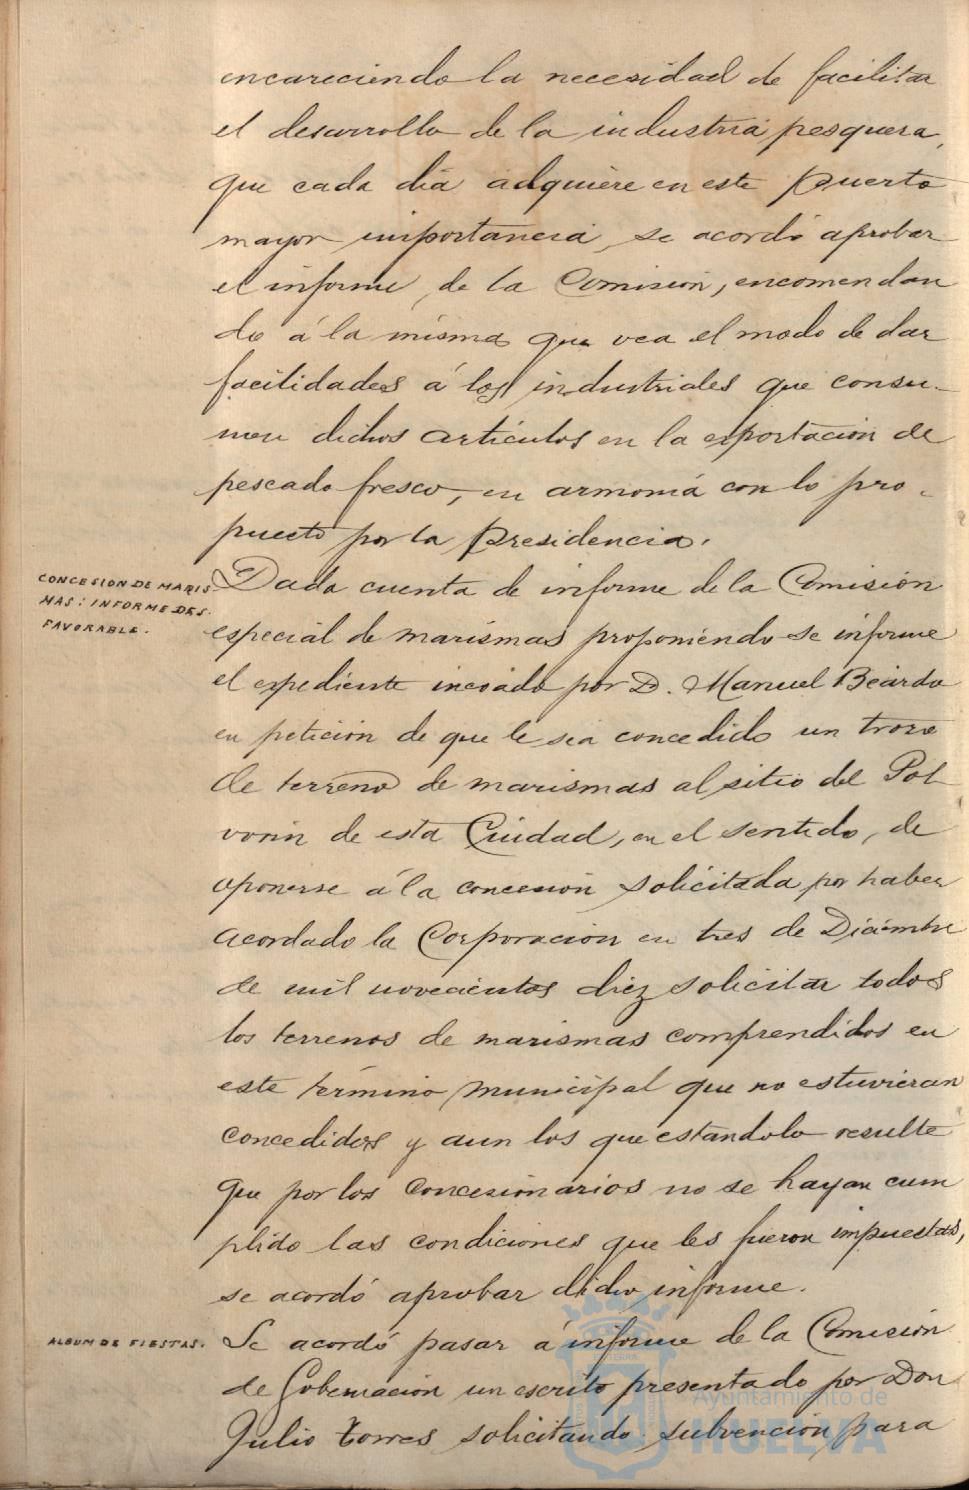 encareciendo la necesidad de facilitar
el desarrollo de la industria pesquera,
que cada dia adquiere en este puerto
mayor importancia, se acordó aprobar
el informe de la Comision, encomendan
do á la misma que vea el modo de dar
facilidades á los industriales que consu-
men dichos articulos en la exportacion de
pescado fresco, en armonia con lo pro-
puesto por la Presidencia.
CONCESION DE MARIS
MAS: INFORME DES
FAVORABLE.
Dada cuenta de informe de la Comision
especial de marismas proponiendo se informe
el expediente incoado por D. Manuel
en peticion de que le sea concedido un trozo
de terreno de marismas al sitio del Pol
vorin de esta Ciudad, en el sentido, de
oponerse á la concesion solicitada por haber
acordado la Corporacion en tres de Diciembre
de mil novecientos diez solicitar todos
los terrenos de marismas comprendidos en
este término municipal que no estuvieran
concedidos y aun los que estandolo resulte
que por los concesionarios no se hayan cum
plido las condiciones que les fueron impuestas,
se acordó aprobar dicho informe.
ALBUM DE FIESTAS.
Se acordó pasar á informe de la Comision
de Gobernacion un escrito presentado por Don
Julio Torres solicitando subvencion para
Ayuntamiento de
HUELVA